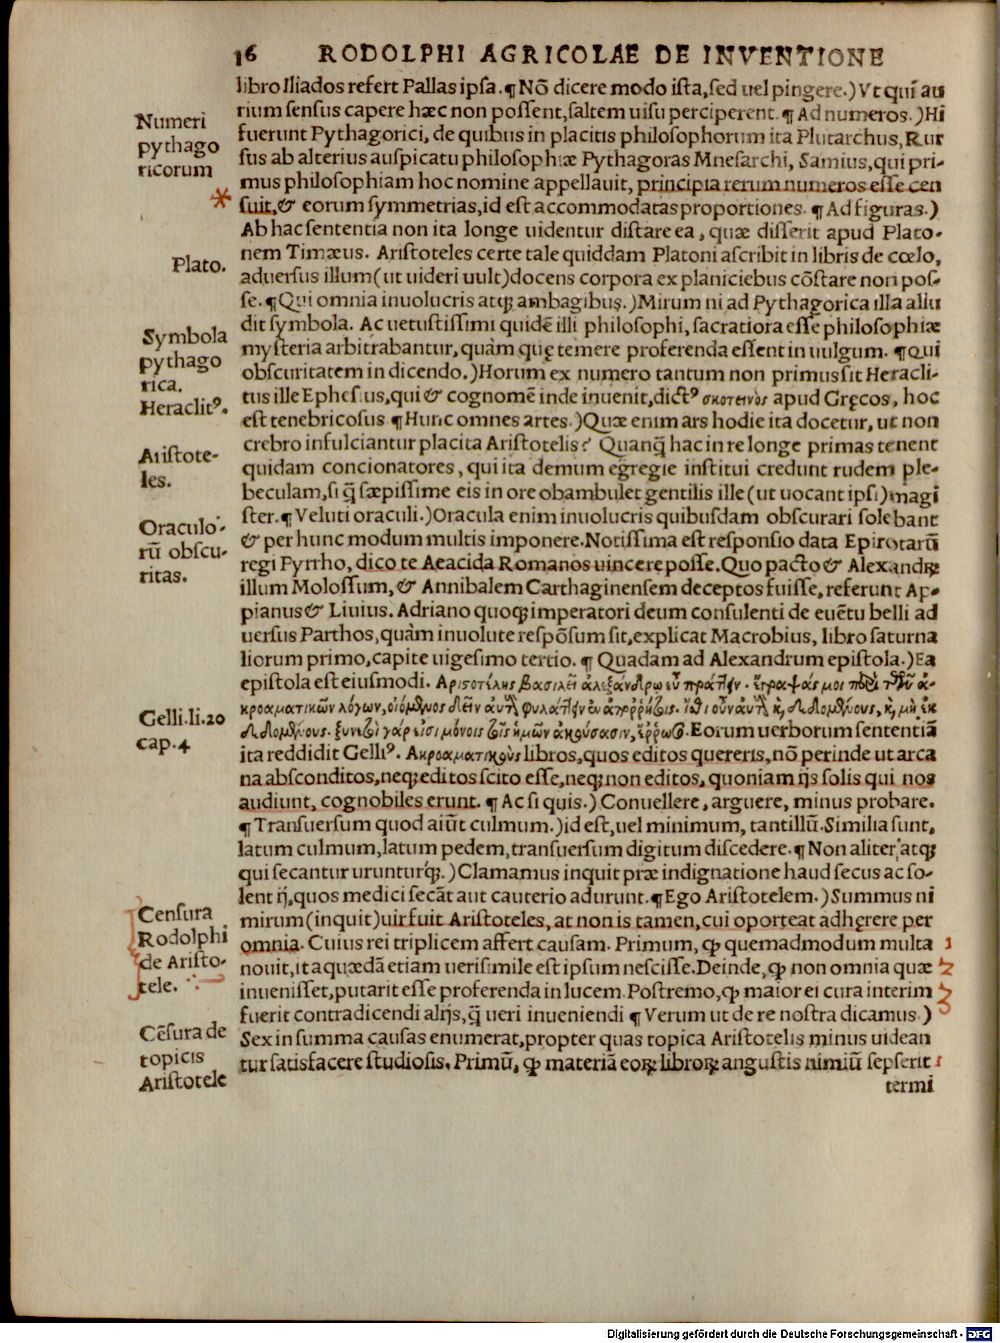 16 RODOLPHI AGRICOLAE DE INVENTIONE
libro Iliados refert Pallas ipsa. ¶ Nõ dicere modo ista, sed uel pingere.) Vt qui au
rium sensus capere hæc non possent, saltem uisu perciperent. ¶ Ad numeros.) Hi
fuerunt Pythagorici, de quibus in placitis philosophorum ita Plutarchus, Rur
sus ab alterius auspicatu philosophiæ Pythagoras Mnesarchi, Samius, qui pri-
mus philosophiam hoc nomine appellauit, principia rerum numeros esse cen
suit, & eorum symmetrias, id est accommodatas proportiones. ¶ Ad figuras.)
Ab hac sententia non ita longe uidentur distare ea, quæ disserit apud Plato-
nem Timæus. Aristoteles certe tale quiddam Platoni ascribit in libris de cœlo,
aduersus illum (ut uideri uult) docens corpora ex planiciebus cõstare non pos-
se. ¶ Qui omnia inuolucris atq; ambagibus.) Mirum ni ad Pythagorica illa allu
dit symbola. Ac uetustissimi quidẽ illi philosophi, sacratiora esse philosophiæ
mysteria arbitrabantur, quàm quę temere proferenda essent in uulgum. ¶ Qui
obscuritatem in dicendo.) Horum ex numero tantum non primus sit Heracli-
tus ille Ephesius, qui & cognomẽ inde inuenit, dictꝰ σκοτεινὸς apud Gręcos, hoc
est tenebricosus ¶ Hunc omnes artes.) Quæ enim ars hodie ita docetur, ut non
crebro infulciantur placita Aristotelis? Quanq̃ hac in re longe primas tenent
quidam concionatores, qui ita demum egregie institui credunt rudem ple-
beculam, si q̃ sæpissime eis in ore obambulet gentilis ille (ut uocant ipsi) magi
ster. ¶ Veluti oraculi.) Oracula enim inuolucris quibusdam obscurari solebant
& per hunc modum multis imponere. Notissima est responsio data Epirotarũ
regi Pyrrho, dico te Aeacida Romanos uincere posse. Quo pacto & Alexandrꝝ
illum Molossum, & Annibalem Carthaginensem deceptos fuisse, referunt Ap-
pianus & Liuius. Adriano quoq; imperatori deum consulenti de euẽtu belli ad
uersus Parthos, quàm inuolute respõsum sit, explicat Macrobius, libro saturna
liorum primo, capite uigesimo tertio. ¶ Quadam ad Alexandrum epistola.) Ea
epistola est eiusmodi. Αριστοτέλης βασιλεῖ ἀλεξάνδρῳ εὖ πράττειν. ἔγραψάς μοι περὶ τῶν ἀ-
κροαματικῶν λόγων, οἰόμενος δεῖν αὐτοὺς φυλάττειν ἐν ἀπορρήτοις. ἴσθι οὖν αὐτοὺς κ, ἐκδεδομένους, κ, μὴ ἐκ
δεδομένους. ξυνετοὶ γάρ εἰσι μόνοις τοῖς ἡμῶν ἀκούσασιν, ἔρρωσο. Eorum uerborum sententiã
ita reddidit Gelliꝰ. Ακροαματικοὺς libros, quos editos quereris, nõ perinde ut arca
na absconditos, neq; editos scito esse, neq; non editos, quoniam ijs solis qui nos
audiunt, cognobiles erunt. ¶ Ac si quis.) Conuellere, arguere, minus probare.
¶ Transuersum quod aiũt culmum.) id est, uel minimum, tantillũ. Similia sunt,
latum culmum, latum pedem, transuersum digitum discedere. ¶ Non aliter atq;
qui secantur urunturq́;.) Clamamus inquit præ indignatione haud secus ac so-
lent ij, quos medici secãt aut cauterio adurunt. ¶ Ego Aristotelem.) Summus ni
mirum (inquit) uir fuit Aristoteles, at non is tamen, cui oporteat adhęrere per
omnia. Cuius rei triplicem affert causam. Primum, ꝙ quemadmodum multa 1
nouit, ita quædã etiam uerisimile est ipsum nescisse. Deinde, ꝙ non omnia quæ 2
inuenisset, putarit esse proferenda in lucem. Postremo, ꝙ maior ei cura interim 3
fuerit contradicendi alijs, q̃ ueri inueniendi ¶ Verum ut de re nostra dicamus.)
Sex in summa causas enumerat, propter quas topica Aristotelis minus uidean
tur satisfacere studiosis. Primũ, ꝙ materiã eoꝝ libroꝝ angustis nimiũ sepserit 1
termi
Numeri
pythago
ricorum
Plato.
Symbola
pythago
rica.
Heraclitꝰ.
Aristote-
les.
Oraculo-
rũ obscu-
ritas.
Gelli. li. 20
cap. 4
Censura
Rodolphi
de Aristo-
tele.
Cẽsura de
topicis
Aristotele
Digitalisierung gefördert durch die Deutsche Forschungsgemeinschaft - DFG